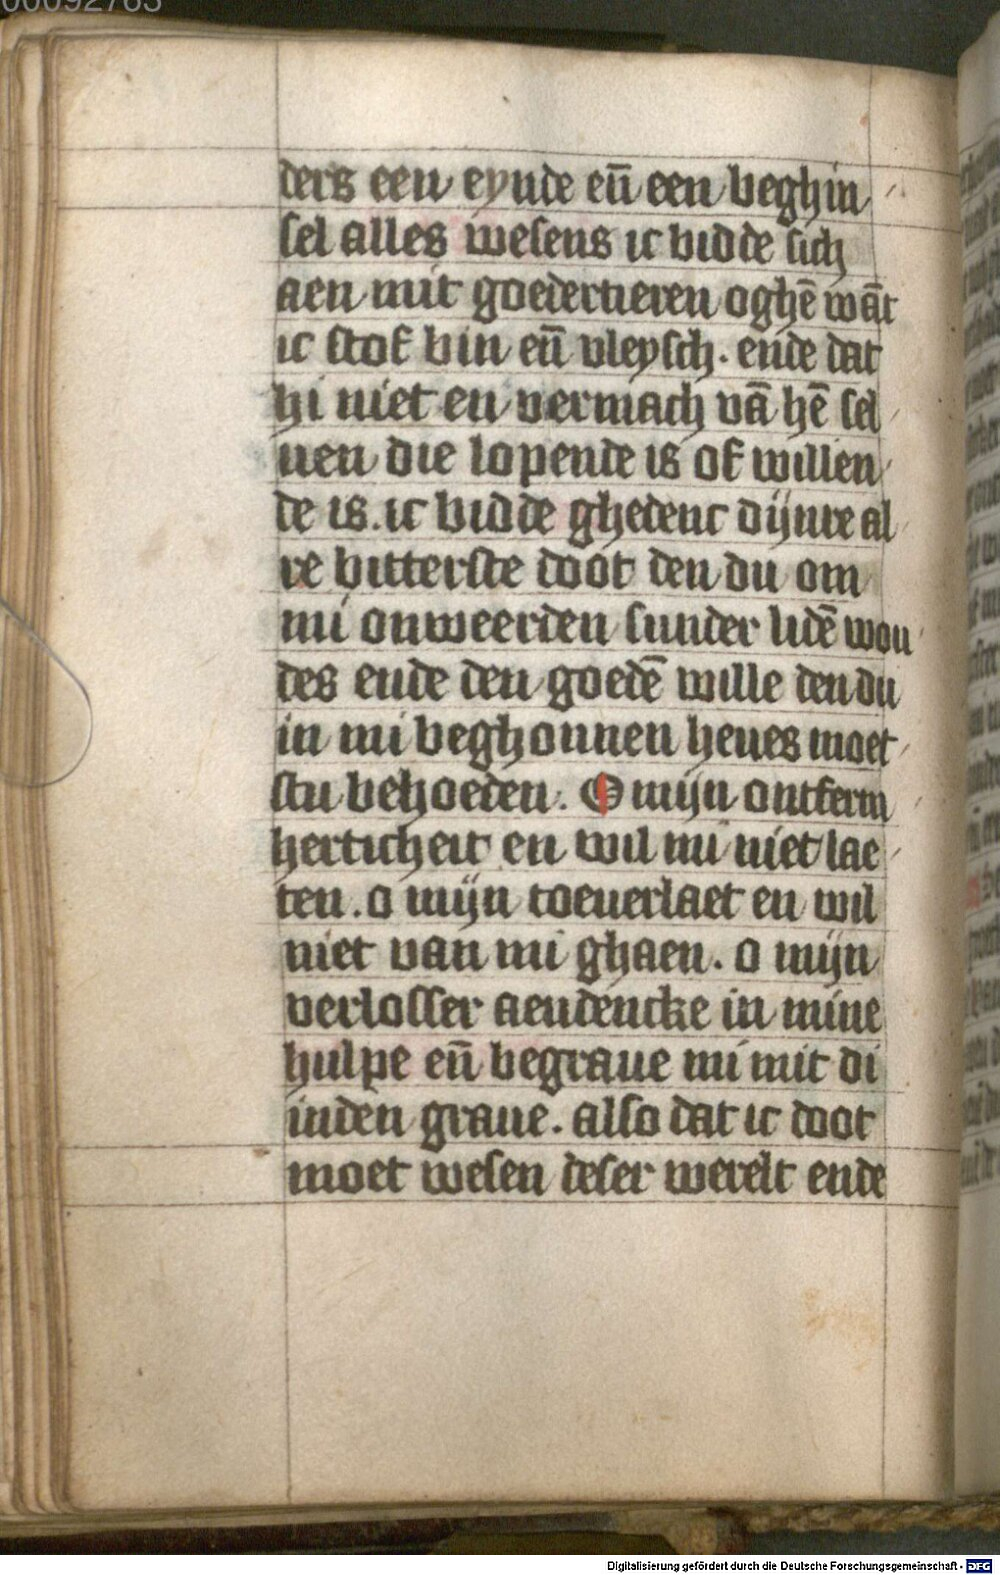 00092763
ders een eynde en̄ een beghin
sel alles wesens ic bidde sich
aen mit goedertieren oghē wāt
ic stof bin en̄ vleysch. ende dat
hi niet en vermach vā hē sel
uen die lopende is of willen
de is. ic bidde ghedenc dijnre al
re bitterste doot den du om
mi onweerden sunder lidē wou
des ende den goedē wille den du
in mi beghonnen heues moet
stu behoeden. O mijn ontferm
herticheit en wil mi niet lae
ten. o mijn toeuerlaet en wil
niet van mi ghaen. o mijn
verlosser aendencke in mine
hulpe en̄ begraue mi mit di
inden graue. also dat ic doot
moet wesen deser werelt ende
Digitalisierung gefördert durch die Deutsche Forschungsgemeinschaft - DFG